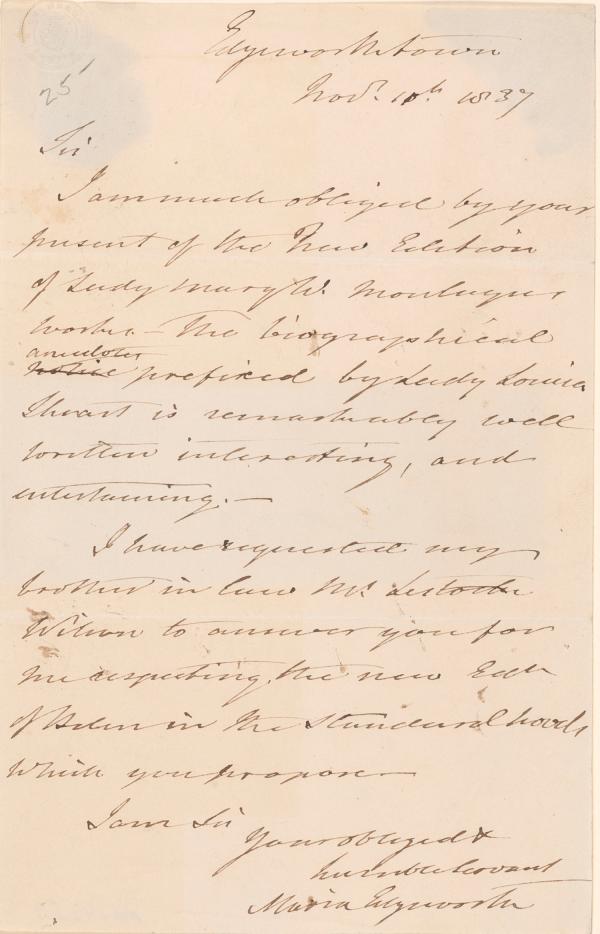 25
Edgeworthstown
Novr. 10th. 1837
Sir
I am much obliged by your
present of the New Edition
of Lady Mary W. Montagues
works – The biographical
anecdotes
notice prefixed by Lady Louisa
Stuart is remarkably well
written interesting, and
entertaining. –
I have requested my
brother in law Mr. Lestock
Wilson to answer you for
me respecting the new Edn
of Helen in the Standard Novels
which you propose –
I am Sir
Your obliged &
humble Servant
Maria Edgeworth